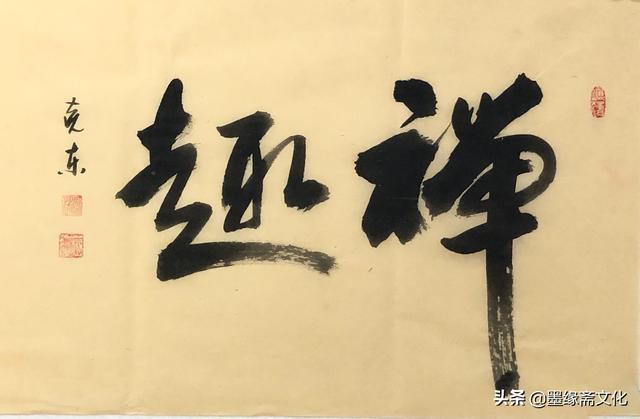 禅趣
克东
头条 @墨缘斋文化